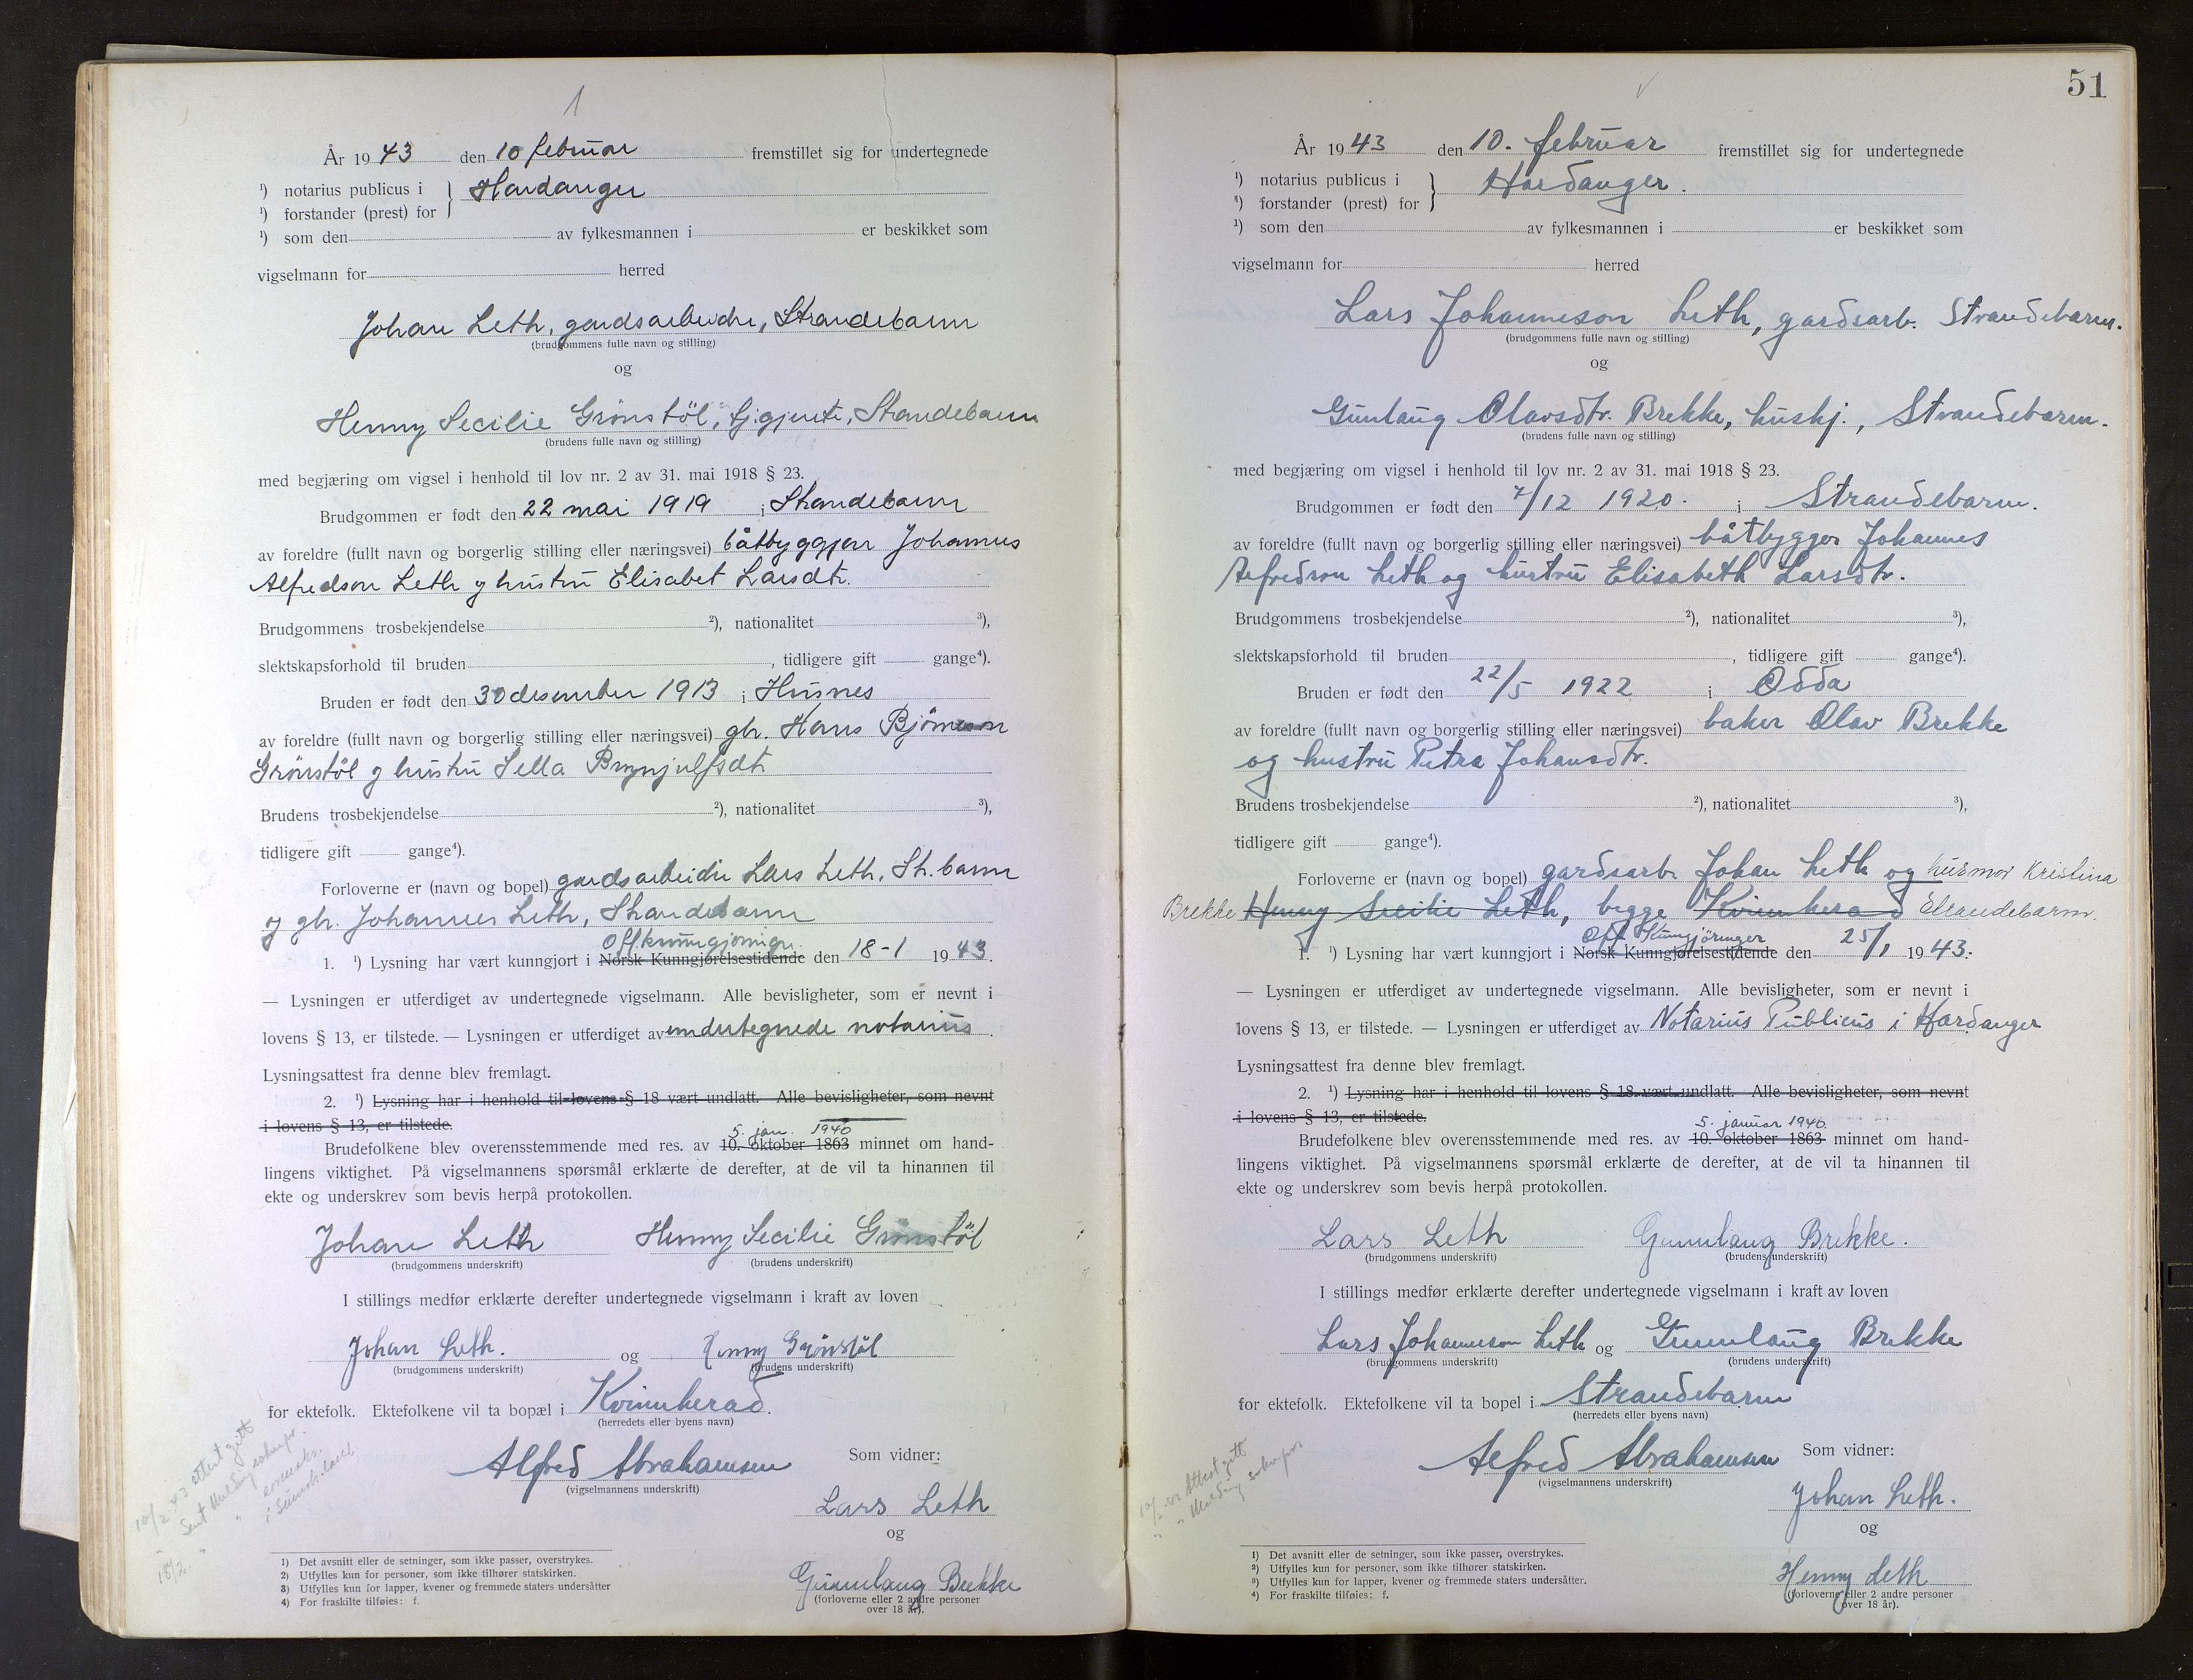 1
År 1943 den 10 februar fremstillet sig for undertegnede
¹) notarius publicus i } Hardanger
¹) forstander (prest) for
¹) som den av fylkesmannen i er beskikket som
vigselmann for herred
Johan Leth, gardsarbeider, Strandebarm
(brudgommens fulle navn og stilling)
og
Henny Secilie Grønstöl, tj.gjente, Strandebarm
(brudens fulle navn og stilling)
med begjæring om vigsel i henhold til lov nr. 2 av 31. mai 1918 § 23.
Brudgommen er født den 22 mai 1919 i Strandebarm
av foreldre (fullt navn og borgerlig stilling eller næringsvei) båtbyggjar Johannes
Alfredson Leth og hustru Elisabet Larsdtr.
Brudgommens trosbekjendelse ²), nationalitet ³),
slektskapsforhold til bruden , tidligere gift gange⁴).
Bruden er født den 30 desember 1913 i Husnes
av foreldre (fullt navn og borgerlig stilling eller næringsvei) gbr. Hans Bjørneson
Grönstöl og hustru Sella Brynjulfsdtr
Brudens trosbekjendelse ²), nationalitet ³),
tidligere gift gange⁴).
Forloverne er (navn og bopel) gardsarbeider Lars Leth, St.barm
og gbr. Johannes Leth, Strandebarm
Off. kunngjøringer
1. ¹) Lysning har vært kunngjort i Norsk Kunngjørelsestidende den 18-1 1943.
— Lysningen er utferdiget av undertegnede vigselmann. Alle bevisligheter, som er nevnt i
lovens § 13, er tilstede. — Lysningen er utferdiget av undertegnede notarius.
Lysningsattest fra denne blev fremlagt.
2. ¹) Lysning har i henhold til lovens § 18 vært undlatt. Alle bevisligheter, som nevnt
i lovens § 13, er tilstede.
5. jan. 1940
Brudefolkene blev overensstemmende med res. av 10. oktober 1863 minnet om hand-
lingens viktighet. På vigselmannens spørsmål erklærte de derefter, at de vil ta hinannen til
ekte og underskrev som bevis herpå protokollen.
Johan Leth Henny Secilie Grønstöl
(brudgommens underskrift) (brudens underskrift)
I stillings medfør erklærte derefter undertegnede vigselmann i kraft av loven
Johan Leth. og Henny Grønstöl
(brudgommens underskrift) (brudens underskrift)
for ektefolk. Ektefolkene vil ta bopæl i Kvinnherad.
(herredets eller byens navn)
Alfred Abrahamsen Som vidner:
(vigselmannens underskrift)
Lars Leth
og
Gunnlaug Brekke
(forloverne eller 2 andre personer
over 18 år).
10/2 43 attest gitt
Sent Melding
i Sunnhordland
18/2.
1) Det avsnitt eller de setninger, som ikke passer, overstrykes.
2) Utfylles kun for personer, som ikke tilhører statskirken.
3) Utfylles kun for lapper, kvener og fremmede staters undersåtter
4) For fraskilte tilføies: f.
51
År 1943 den 10. februar fremstillet sig for undertegnede
¹) notarius publicus i } Hardanger.
¹) forstander (prest) for
¹) som den av fylkesmannen i er beskikket som
vigselmann for herred
Lars Johanneson Leth, gardsarb. Strandebarm.
(brudgommens fulle navn og stilling)
og
Gunlaug Olavsdtr. Brekke, hushj., Strandebarm.
(brudens fulle navn og stilling)
med begjæring om vigsel i henhold til lov nr. 2 av 31. mai 1918 § 23.
Brudgommen er født den 7/12 1920. i Strandebarm.
av foreldre (fullt navn og borgerlig stilling eller næringsvei) båtbygger Johannes
Alfredson Leth og hustru Elisabeth Larsdtr.
Brudgommens trosbekjendelse ²), nationalitet ³),
slektskapsforhold til bruden , tidligere gift gange⁴).
Bruden er født den 22/5 1922 i Odda
av foreldre (fullt navn og borgerlig stilling eller næringsvei) baker Olav Brekke
og hustru Petra Johansdtr.
Brudens trosbekjendelse ²), nationalitet ³),
tidligere gift gange⁴).
Forloverne er (navn og bopel) gardsarb. Johan Leth og husmor Kristina
Brekke Henny Secilie Leth, begge Kvinnherad Strandebarm.
Off. Kunngjøringer
1. ¹) Lysning har vært kunngjort i Norsk Kunngjørelsestidende den 25/1 1943.
— Lysningen er utferdiget av undertegnede vigselmann. Alle bevisligheter, som er nevnt i
lovens § 13, er tilstede. — Lysningen er utferdiget av Notarius Publicus i Hardanger
Lysningsattest fra denne blev fremlagt.
2. ¹) Lysning har i henhold til lovens § 18 vært undlatt. Alle bevisligheter, som nevnt
i lovens § 13, er tilstede.
5. januar 1940.
Brudefolkene blev overensstemmende med res. av 10. oktober 1863 minnet om hand-
lingens viktighet. På vigselmannens spørsmål erklærte de derefter, at de vil ta hinannen til
ekte og underskrev som bevis herpå protokollen.
Lars Leth Gunnlaug Brekke.
(brudgommens underskrift) (brudens underskrift)
I stillings medfør erklærte derefter undertegnede vigselmann i kraft av loven
Lars Johanneson Leth og Gunnlaug Brekke
(brudgommens underskrift) (brudens underskrift)
for ektefolk. Ektefolkene vil ta bopel i Strandebarm
(herredets eller byens navn)
Alfred Abrahamsen Som vidner:
(vigselmannens underskrift)
Johan Leth.
og
Henny Leth
(forloverne eller 2 andre personer
over 18 år).
10/2 43 Attest gitt
" " Melding soknepr.
1) Det avsnitt eller de setninger, som ikke passer, overstrykes.
2) Utfylles kun for personer, som ikke tilhører statskirken.
3) Utfylles kun for lapper, kvener og fremmede staters undersåtter.
4) For fraskilte tilføies: f.